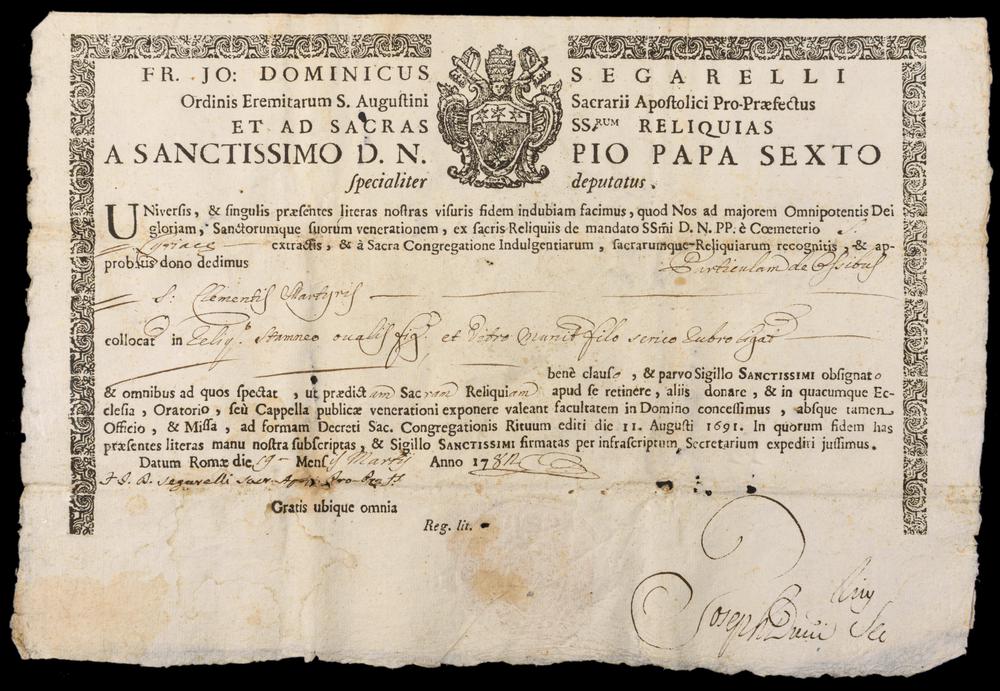 FR. JO: DOMINICUS SEGARELLI
Ordinis Eremitarum S. Augustini Sacrarii Apostolici Pro-Præfectus
ET AD SACRAS SS.RUM RELIQUIAS
A SANCTISSIMO D. N. PIO PAPA SEXTO
specialiter deputatus.
UNiversis, & singulis præsentes literas nostras visuris fidem indubiam facimus, quod Nos ad majorem Omnipotentis Dei
gloriam, Sanctorumque suorum venerationem, ex sacris Reliquiis de mandato SSmi D. N. PP. è Cœmeterio S.
Cyriacę extractis, & à Sacra Congregatione Indulgentiarum, sacrarumque Reliquiarum recognitis, & ap-
probatis dono dedimus Particulam de Ossibus
S: Clementis Martyris
collocat in Reliq. Stamneo ovalis fig. et Vitro Munit filo serico rubro ligat
benè clauso, & parvo Sigillo SANCTISSIMI obsignato
& omnibus ad quos spectat, ut prædictam Sacram Reliquiam apud se retinere, aliis donare, & in quacumque Ec-
clesia, Oratorio, seù Cappella publicæ venerationi exponere valeant facultatem in Domino concessimus, absque tamen
Officio, & Missa, ad formam Decreti Sac. Congregationis Rituum editi die 11. Augusti 1691. In quorum fidem has
præsentes literas manu nostra subscriptas, & Sigillo SANCTISSIMI firmatas per infrascriptum Secretarium expediri jussimus.
Datum Romæ die 19 Mensis Martij Anno 1782
F. J. D. Segarelli Sacr. Apost. Pro-Præf.
Gratis ubique omnia
Reg. lit.
Joseph Sec